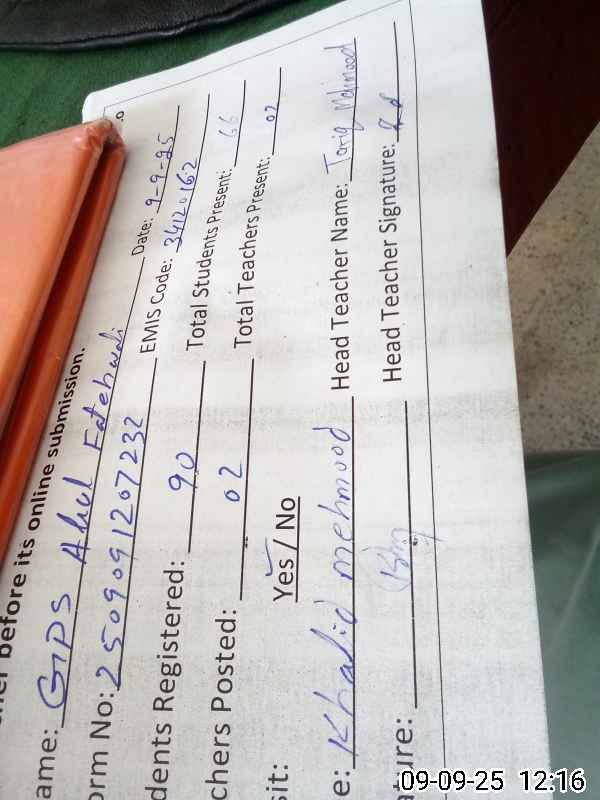 her before its online submission.
ame: GPS Adul Fatehwali Date: 9-9-25
orm No: 250909120 7232 EMIS Code: 34120162
dents Registered: 90 Total Students Present: 66
chers Posted: 02 Total Teachers Present: 02
sit: Yes / No
e: Khalid mehmood Head Teacher Name: Tariq Mehmood
ature: Head Teacher Signature:
09-09-25 12:16